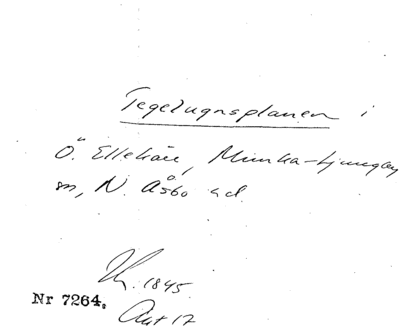 Tegelugnsplanen i
Ö. Ellekärr, Munka-Ljungby
sn, N. Åsbo hd.
1845.
Nr 7264.
Akt 17